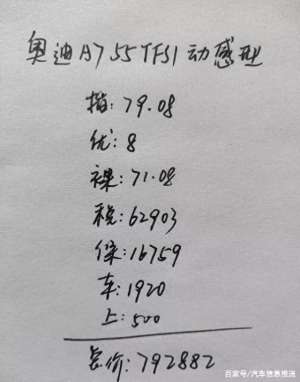 奥迪A7 55 TFSI 动感型
指:79.08
优:8
裸:71.08
税:62903
保:16759
车:1920
上:500
总价:792882
百家号/汽车信息推送